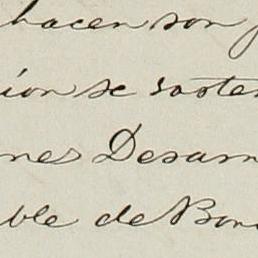 hacen son
ion se soste
nes Desam
ble de Bon